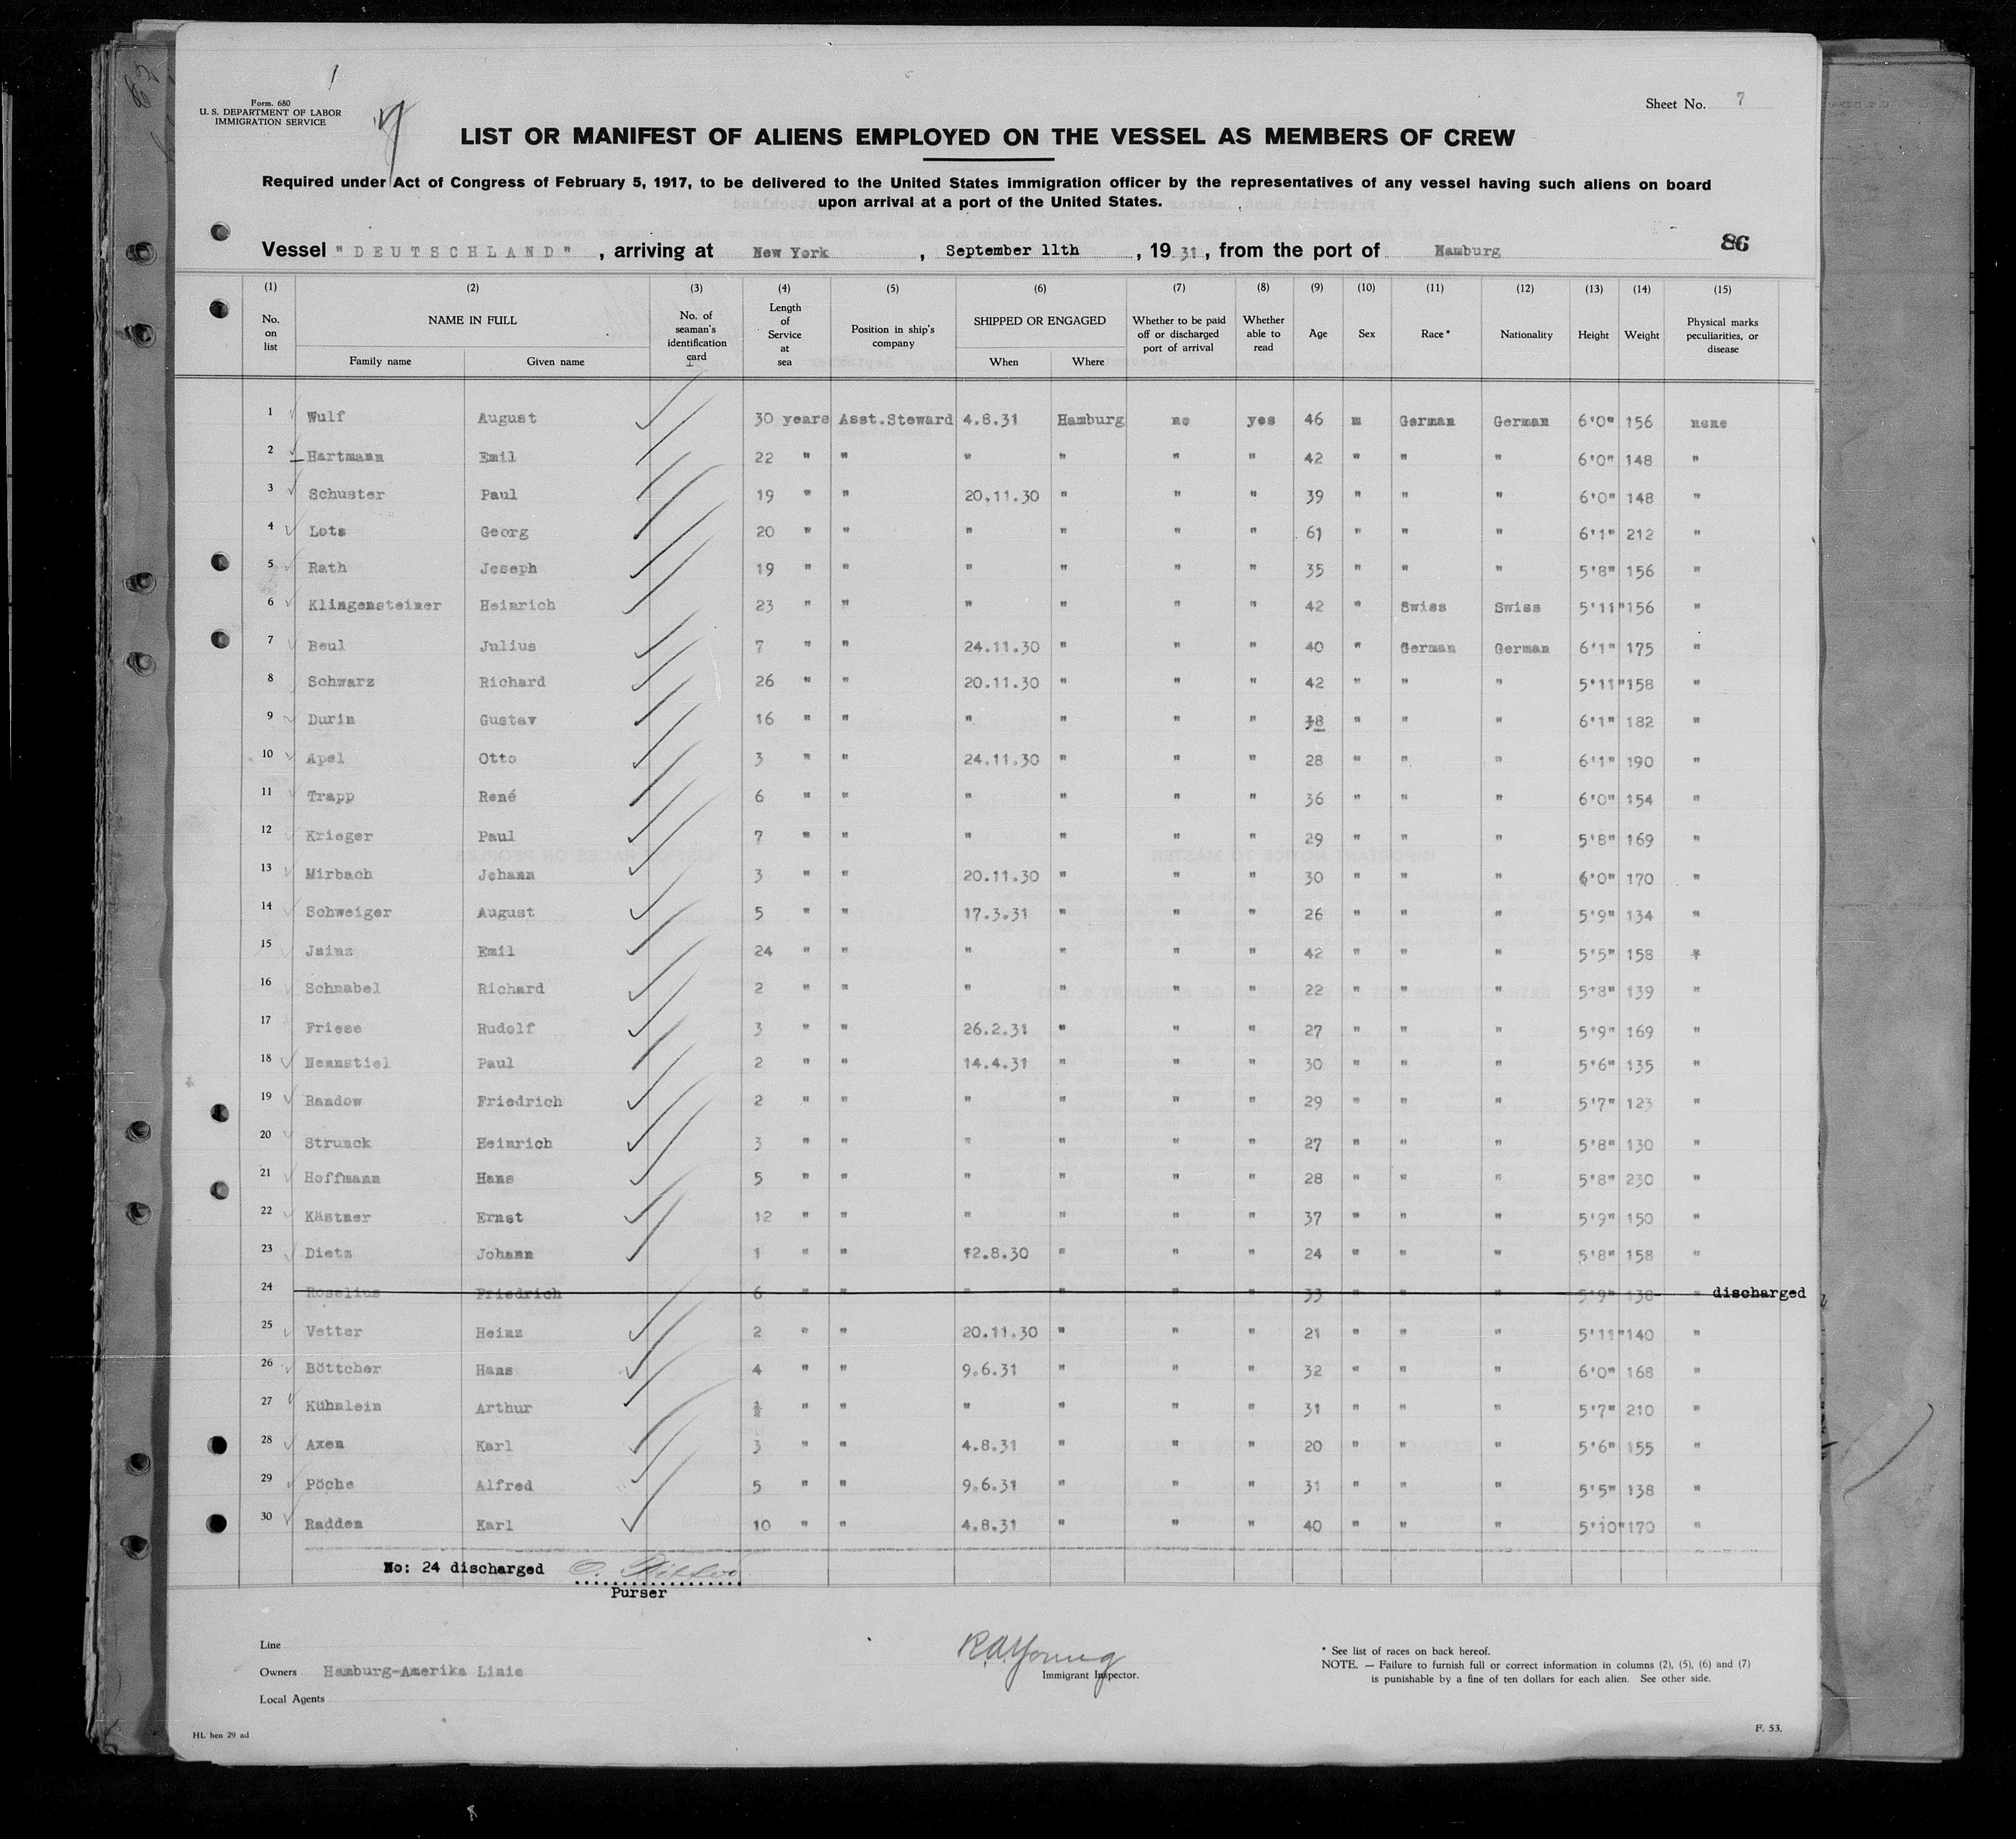 Form. 680
U. S. DEPARTMENT OF LABOR
IMMIGRATION SERVICE
Sheet No. 7
LIST OR MANIFEST OF ALIENS EMPLOYED ON THE VESSEL AS MEMBERS OF CREW
Required under Act of Congress of February 5, 1917, to be delivered to the United States immigration officer by the representatives of any vessel having such aliens on board
upon arrival at a port of the United States.
86
Vessel "DEUTSCHLAND", arriving at New York, September 11th, 1931, from the port of Hamburg
(1) (2) (3) (4) (5) (6) (7) (8) (9) (10) (11) (12) (13) (14) (15)
No. on list NAME IN FULL Family name Given name No. of seaman's identification card Length of Service at sea Position in ship's company SHIPPED OR ENGAGED When Where Whether to be paid off or discharged port of arrival Whether able to read Age Sex Race* Nationality Height Weight Physical marks peculiarities, or disease
1 Wulf August 30 years Asst.Steward 4.8.31 Hamburg no yes 46 m German German 6'0" 156 none
2 Hartmann Emil 22 " " " " " " 42 " " " 6'0" 148 "
3 Schuster Paul 19 " " 20.11.30 " " " 39 " " " 6'0" 148 "
4 Lots Georg 20 " " " " " " 61 " " " 6'1" 212 "
5 Rath Joseph 19 " " " " " " 35 " " " 5'8" 156 "
6 Klingensteiner Heinrich 23 " " " " " " 42 " Swiss Swiss 5'11" 156 "
7 Beul Julius 7 " " 24.11.30 " " " 40 " German German 6'1" 175 "
8 Schwarz Richard 26 " " 20.11.30 " " " 42 " " " 5'11" 158 "
9 Durin Gustav 16 " " " " " " 38 " " " 6'1" 182 "
10 Apel Otto 3 " " 24.11.30 " " " 28 " " " 6'1" 190 "
11 Trapp René 6 " " " " " " 36 " " " 6'0" 154 "
12 Krieger Paul 7 " " " " " " 29 " " " 5'8" 169 "
13 Mirbach Johann 3 " " 20.11.30 " " " 30 " " " 6'0" 170 "
14 Schweiger August 5 " " 17.3.31 " " " 26 " " " 5'9" 134 "
15 Jainz Emil 24 " " " " " " 42 " " " 5'5" 158 "
16 Schnabel Richard 2 " " " " " " 22 " " " 5'8" 139 "
17 Friese Rudolf 3 " " 26.2.31 " " " 27 " " " 5'9" 169 "
18 Nennstiel Paul 2 " " 14.4.31 " " " 30 " " " 5'6" 135 "
19 Randow Friedrich 2 " " " " " " 29 " " " 5'7" 123 "
20 Strunck Heinrich 3 " " " " " " 27 " " " 5'8" 130 "
21 Hoffmann Hans 5 " " " " " " 28 " " " 5'8" 230 "
22 Kästner Ernst 12 " " " " " " 37 " " " 5'9" 150 "
23 Dietz Johann 1 " " 12.8.30 " " " 24 " " " 5'8" 158 "
24 Roselius Friedrich 6 " " " " " " 33 " " " 5'9" 138 " discharged
25 Vetter Heinz 2 " " 20.11.30 " " " 21 " " " 5'11" 140 "
26 Böttcher Hans 4 " " 9.6.31 " " " 32 " " " 6'0" 168 "
27 Kühnlein Arthur ½ " " " " " " 31 " " " 5'7" 210 "
28 Axen Karl 3 " " 4.8.31 " " " 20 " " " 5'6" 155 "
29 Pöche Alfred 5 " " 9.6.31 " " " 31 " " " 5'5" 138 "
30 Radden Karl 10 " " 4.8.31 " " " 40 " " " 5'10" 170 "
No: 24 discharged
Purser
Line
Owners Hamburg-Amerika Linie
Local Agents
R.A. Young
Immigrant Inspector.
* See list of races on back hereof.
NOTE. — Failure to furnish full or correct information in columns (2), (5), (6) and (7)
is punishable by a fine of ten dollars for each alien. See other side.
HL hen 29 ad
F. 53.